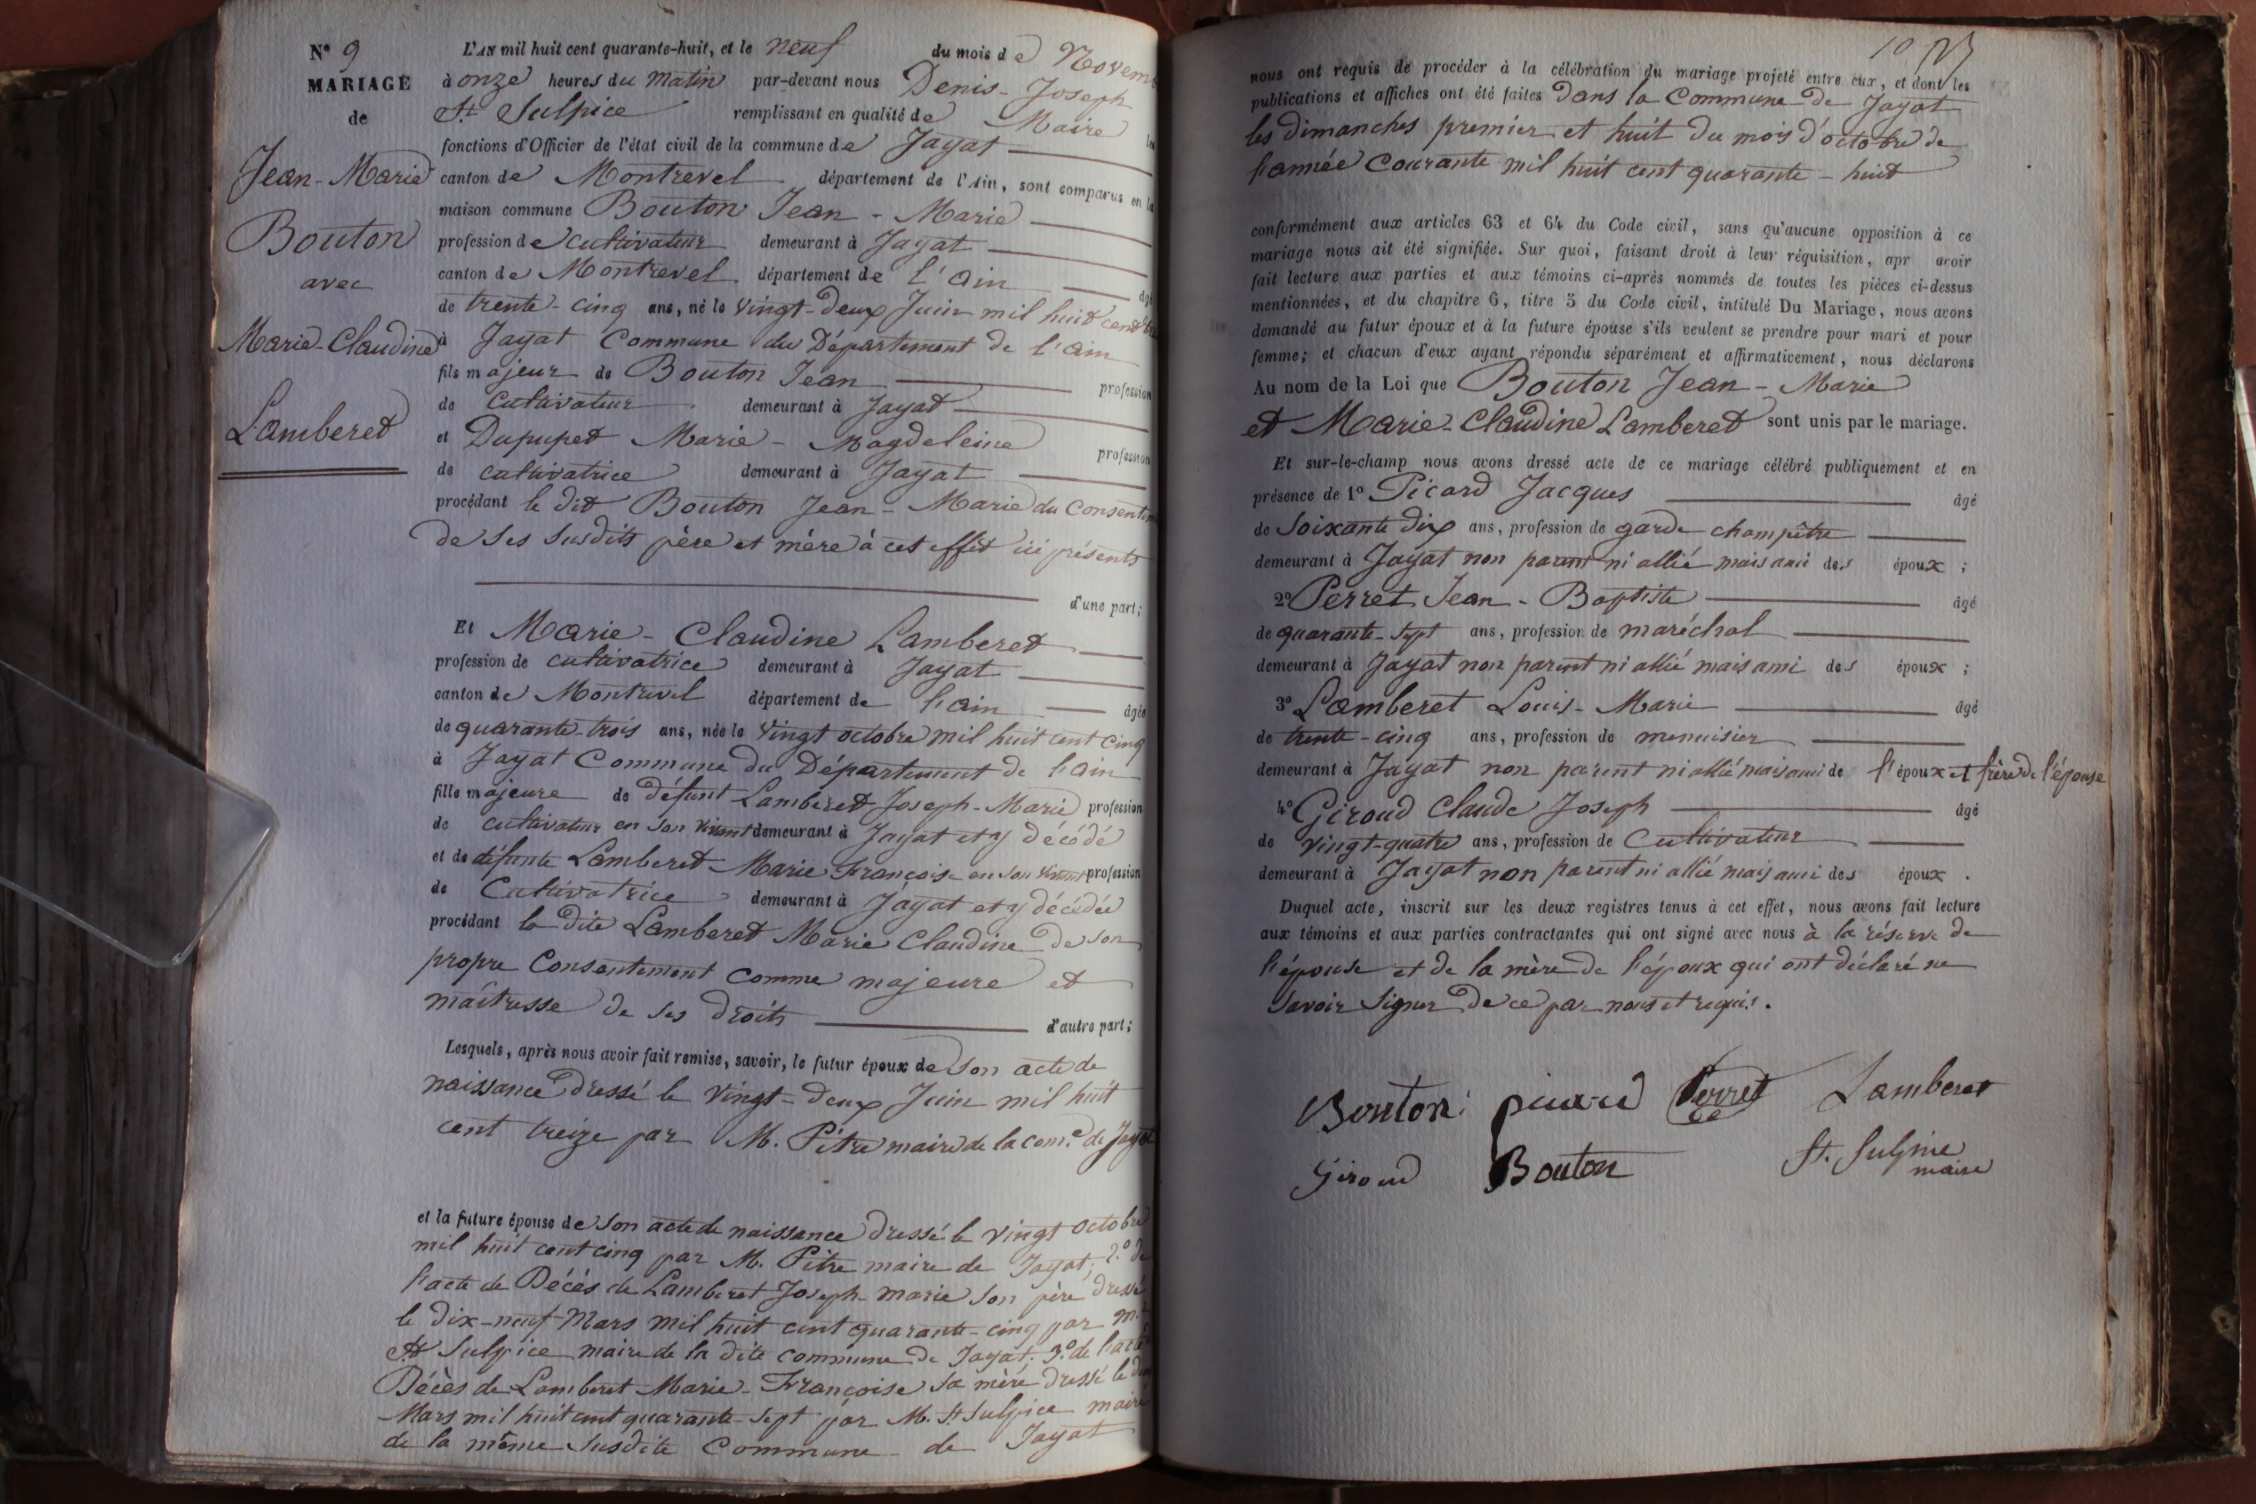 Nº 9
MARIAGE
de
Jean-Marie
Bouton
avec
Marie-Claudine
Lamberet
L'AN mil huit cent quarante-huit, et le neuf du mois de Novem
à onze heures du matin par-devant nous Denis-Joseph
St Sulpice remplissant en qualité de Maire les
fonctions d'Officier de l'état civil de la commune de Jayat
canton de Montrevel département de l'Ain, sont comparus en la
maison commune Bouton Jean-Marie
profession de cultivateur demeurant à Jayat
canton de Montrevel département de l'ain âgé
de trente-cinq ans, né le vingt-deux Juin mil huit cent
à Jayat Commune du Département de l'ain
fils majeur de Bouton Jean profession
de cultivateur demeurant à Jayat
et Dupupet Marie-Magdeleine profession
de cultivatrice demeurant à Jayat
procédant le dit Bouton Jean-Marie du Consentem
de ses susdits père et mère à cet effet ici présents
d'une part;
Et Marie-Claudine Lamberet
profession de cultivatrice demeurant à Jayat
canton de Montrevel département de l'ain âgée
de quarante-trois ans, née le vingt octobre mil huit cent cinq
à Jayat Commune du Département de l'ain
fille majeure de défunt Lamberet Joseph-Marie profession
de cultivateur en son vivant demeurant à Jayat et y décédé
et de défunte Lamberet Marie Françoise en son vivant profession
de Cultivatrice demeurant à Jayat et y décédée
procédant la dite Lamberet Marie Claudine de son
propre Consentement comme majeure et
maîtresse de ses droits d'autre part;
Lesquels, après nous avoir fait remise, savoir, le futur époux de son acte de
naissance dressé le vingt-deux Juin mil huit
cent treize par M. Pitre maire de la com.e de Jayat
et la future épouse de son acte de naissance dressé le vingt octobre
mil huit cent cinq par M. Pitre maire de Jayat; 2.º de
l'acte de Décès de Lamberet Joseph-marie son père dressé
le dix-neuf Mars mil huit cent quarante-cinq par M.
St Sulpice maire de la dite commune de Jayat; 3.º de l'acte
Décès de Lamberet Marie-Françoise sa mère dressé le
Mars mil huit cent quarante-sept par M. St Sulpice maire
de la même susdite Commune de Jayat
10
nous ont requis de procéder à la célébration du mariage projeté entre eux, et dont les
publications et affiches ont été faites dans la Commune de Jayat
les dimanches premier et huit du mois d'octobre de
l'année Courante mil huit cent quarante-huit
conformément aux articles 63 et 64 du Code civil, sans qu'aucune opposition à ce
mariage nous ait été signifiée. Sur quoi, faisant droit à leur réquisition, apr avoir
fait lecture aux parties et aux témoins ci-après nommés de toutes les pièces ci-dessus
mentionnées, et du chapitre 6, titre 5 du Code civil, intitulé Du Mariage, nous avons
demandé au futur époux et à la future épouse s'ils veulent se prendre pour mari et pour
femme; et chacun d'eux ayant répondu séparément et affirmativement, nous déclarons
Au nom de la Loi que Bouton Jean-Marie
et Marie-Claudine Lamberet sont unis par le mariage.
Et sur-le-champ nous avons dressé acte de ce mariage célébré publiquement et en
présence de 1º Picard Jacques âgé
de soixante dix ans, profession de garde champêtre
demeurant à Jayat non parent ni allié mais ami des époux;
2º Perret Jean-Baptiste âgé
de quarante-sept ans, profession de maréchal
demeurant à Jayat non parent ni allié mais ami des époux;
3º Lamberet Louis-Marie âgé
de trente-cinq ans, profession de menuisier
demeurant à Jayat non parent ni allié mais ami de l'époux et frère de l'épouse
4º Giroud Claude Joseph âgé
de vingt-quatre ans, profession de Cultivateur
demeurant à Jayat non parent ni allié mais ami des époux.
Duquel acte, inscrit sur les deux registres tenus à cet effet, nous avons fait lecture
aux témoins et aux parties contractantes qui ont signé avec nous à la réserve de
l'épouse et de la mère de l'époux qui ont déclaré ne
savoir signer de ce par nous et requis.
Bouton picard Perret Lamberet
Giroud Bouton St. Sulpice
maire